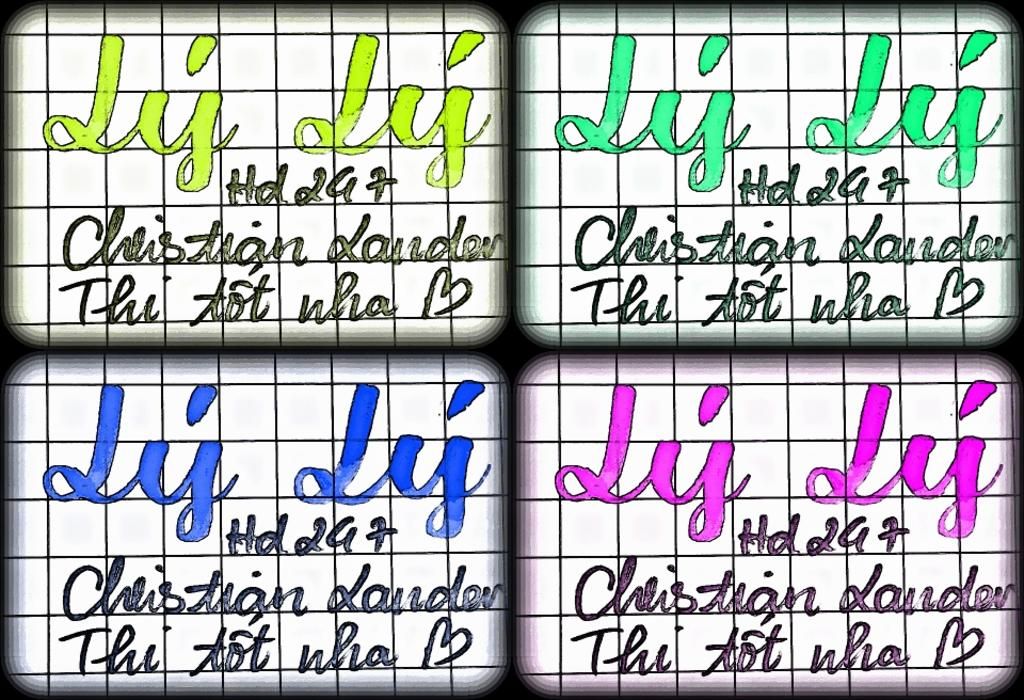 Lý Lý
Hd 247
Christian Lander
Thi tốt nha
Lý Lý
Hd 247
Christian Lander
Thi tốt nha
Lý Lý
Hd 247
Christian Lander
Thi tốt nha
Lý Lý
Hd 247
Christian Lander
Thi tốt nha